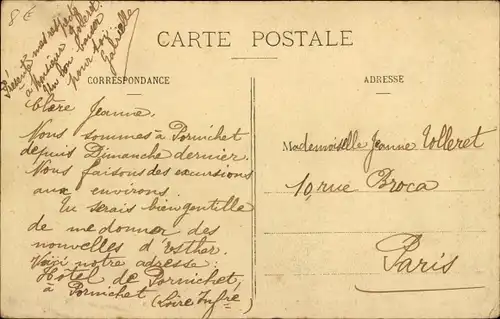 8€
Présente mes respects
à Monsieur
Un bon baiser
pour toi.
Gabrielle
CARTE POSTALE
CORRESPONDANCE
ADRESSE
Chère Jeanne.
Nous sommes à Pornichet
depuis Dimanche dernier.
Nous faisons des excursions
aux environs.
Tu serais bien gentille
de me donner des
nouvelles d'Esther.
Voici notre adresse
Hôtel de Pornichet,
à Pornichet (Loire Infre)
Mademoiselle Jeanne Tolleret
10 rue Broca
Paris